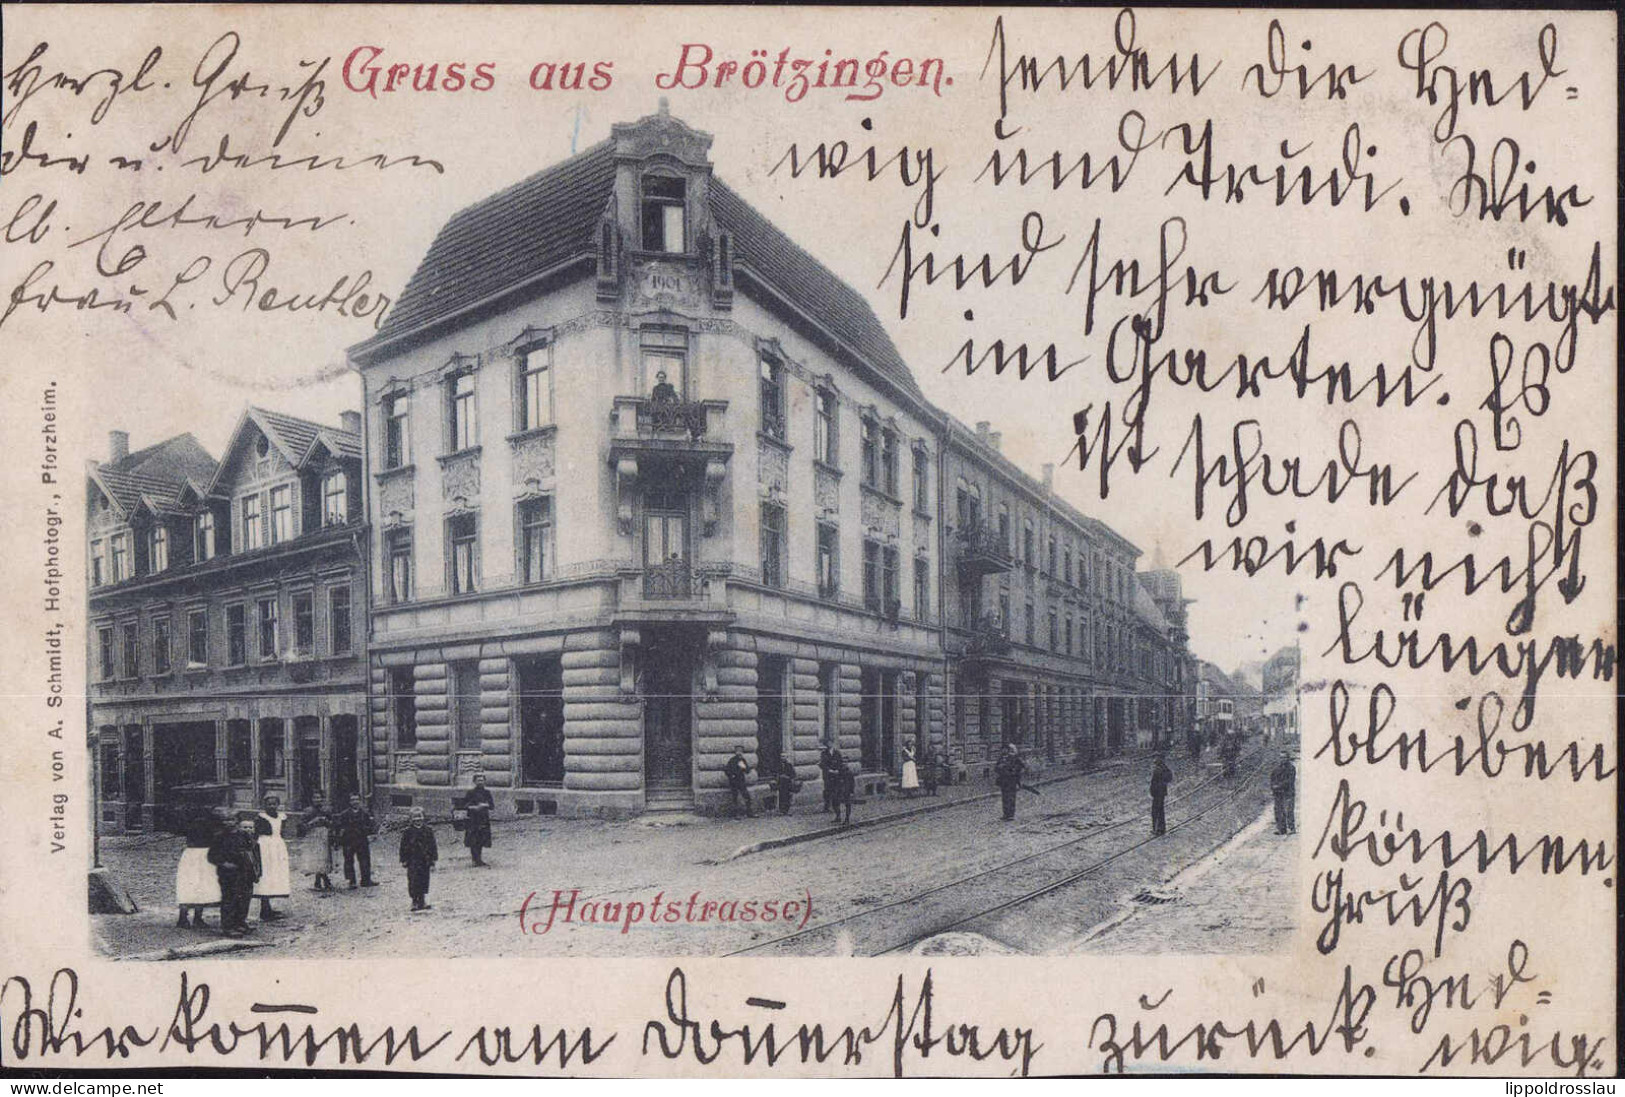 Gruss aus Brötzingen.
Herzl. Gruß
dir u. deinen
lb. Eltern.
Frau L. Reutler
senden dir Hed-
wig und Trudi. Wir
sind sehr vergnügt
im Garten. Es
ist schade daß
wir nicht
länger
bleiben
können.
Gruß
Hed-
wig.
Wir kom̄en am Don̄erstag zurück.
1901
(Hauptstrasse)
Verlag von A. Schmidt, Hofphotogr., Pforzheim.
lippoldrosslau